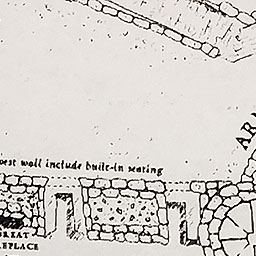 west wall include built-in seating
AR
GREAT
FIREPLACE